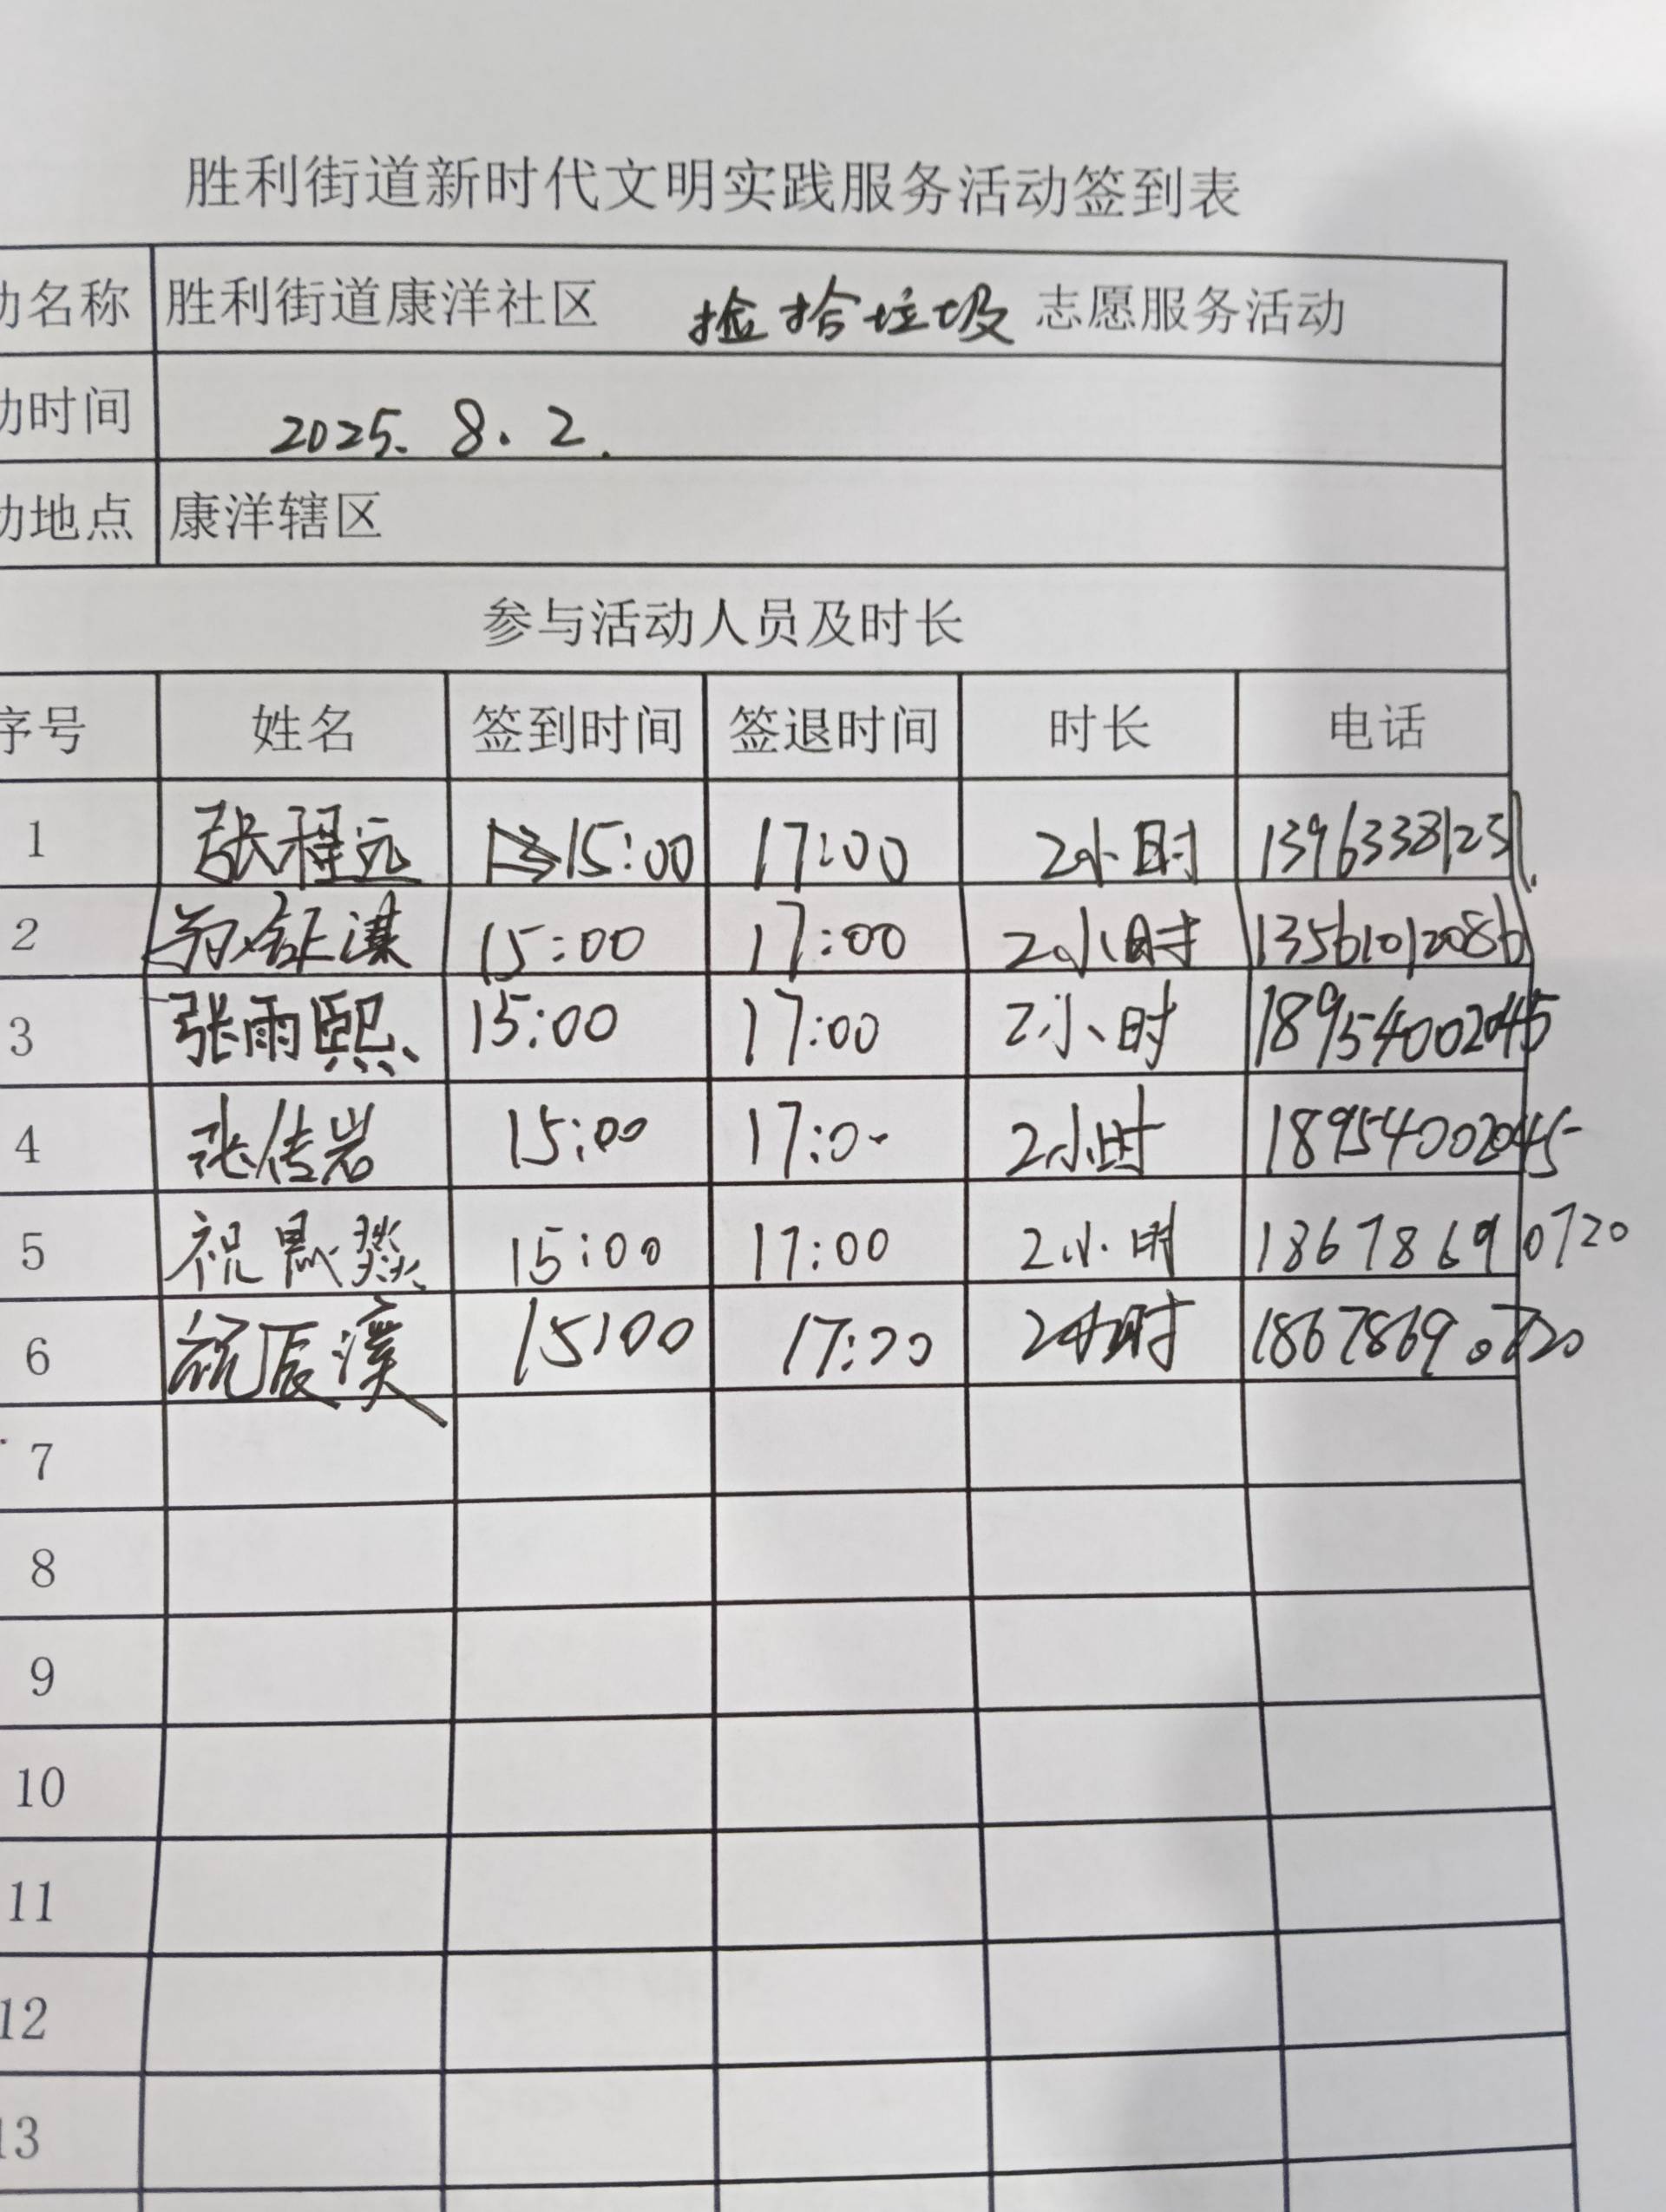 胜利街道新时代文明实践服务活动签到表
动名称 胜利街道康洋社区 捡拾垃圾 志愿服务活动
动时间 2025.8.2.
动地点 康洋辖区
参与活动人员及时长
序号 姓名 签到时间 签退时间 时长 电话
1 张程远 15:00 17:00 2小时 13963381231
2 15:00 17:00 2小时 13561012086
3 张雨熙 15:00 17:00 2小时 18954002045
4 张传岩 15:00 17:00 2小时 18954002045
5 祝晟燚 15:00 17:00 2小时 18678690720
6 祝辰溪 15:00 17:00 2小时 18678690720
7
8
9
10
11
12
13